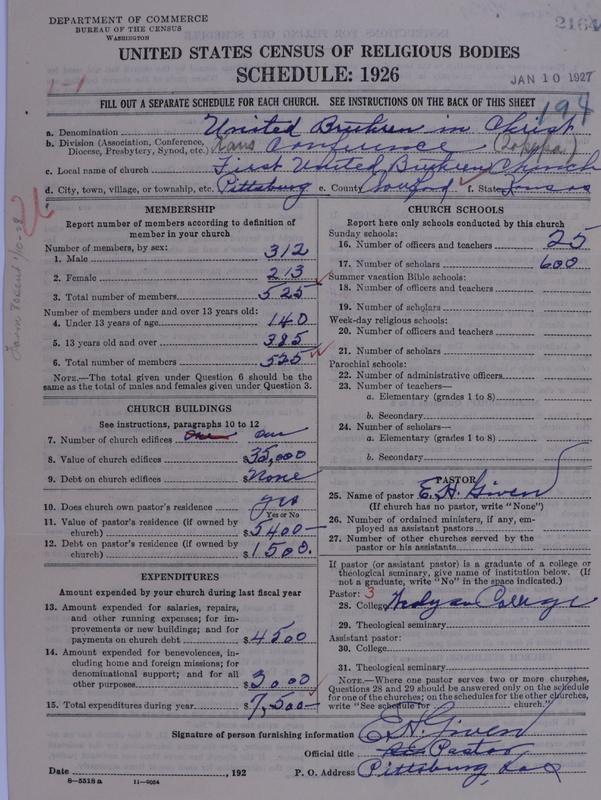 DEPARTMENT OF COMMERCE
BUREAU OF THE CENSUS
WASHINGTON
2164
UNITED STATES CENSUS OF RELIGIOUS BODIES
SCHEDULE: 1926
1-1
JAN 10 1927
FILL OUT A SEPARATE SCHEDULE FOR EACH CHURCH. SEE INSTRUCTIONS ON THE BACK OF THIS SHEET
194
a. Denomination United Brethren in Christ
b. Division (Association, Conference, Diocese, Presbytery, Synod, etc.) Kans Conference
c. Local name of church First United Brethren Church
d. City, town, village, or township, etc. Pittsburg e. County Crawford f. State Kansas
MEMBERSHIP
Report number of members according to definition of member in your church
Number of members, by sex:
1. Male 312
2. Female 213
3. Total number of members 525
Number of members under and over 13 years old:
4. Under 13 years of age 140
5. 13 years old and over 385
6. Total number of members 525
NOTE.—The total given under Question 6 should be the same as the total of males and females given under Question 3.
CHURCH BUILDINGS
See instructions, paragraphs 10 to 12
7. Number of church edifices one one
8. Value of church edifices $35,000
9. Debt on church edifices $None
10. Does church own pastor's residence? yes
Yes or No
11. Value of pastor's residence (if owned by church) $5400
12. Debt on pastor's residence (if owned by church) $1500.
EXPENDITURES
Amount expended by your church during last fiscal year
13. Amount expended for salaries, repairs, and other running expenses; for improvements or new buildings; and for payments on church debt $4500
14. Amount expended for benevolences, including home and foreign missions; for denominational support; and for all other purposes $3000
15. Total expenditures during year $7,500
CHURCH SCHOOLS
Report here only schools conducted by this church
Sunday schools:
16. Number of officers and teachers 25
17. Number of scholars 600
Summer vacation Bible schools:
18. Number of officers and teachers
19. Number of scholars
Week-day religious schools:
20. Number of officers and teachers
21. Number of scholars
Parochial schools:
22. Number of administrative officers
23. Number of teachers—
a. Elementary (grades 1 to 8)
b. Secondary
24. Number of scholars—
a. Elementary (grades 1 to 8)
b. Secondary
PASTOR
25. Name of pastor E. H. Given
(If church has no pastor, write "None")
26. Number of ordained ministers, if any, employed as assistant pastors
27. Number of other churches served by the pastor or his assistants
If pastor (or assistant pastor) is a graduate of a college or theological seminary, give name of institution below. (If not a graduate, write "No" in the space indicated.)
Pastor: 3
28. College College
29. Theological seminary
Assistant pastor:
30. College
31. Theological seminary
NOTE.—Where one pastor serves two or more churches, Questions 28 and 29 should be answered only on the schedule for one of the churches; on the schedules for the other churches, write "See schedule for church."
Signature of person furnishing information E. H. Given
Official title Pastor
Date , 192 P. O. Address Pittsburg, Kas
8-5518a 11-9054